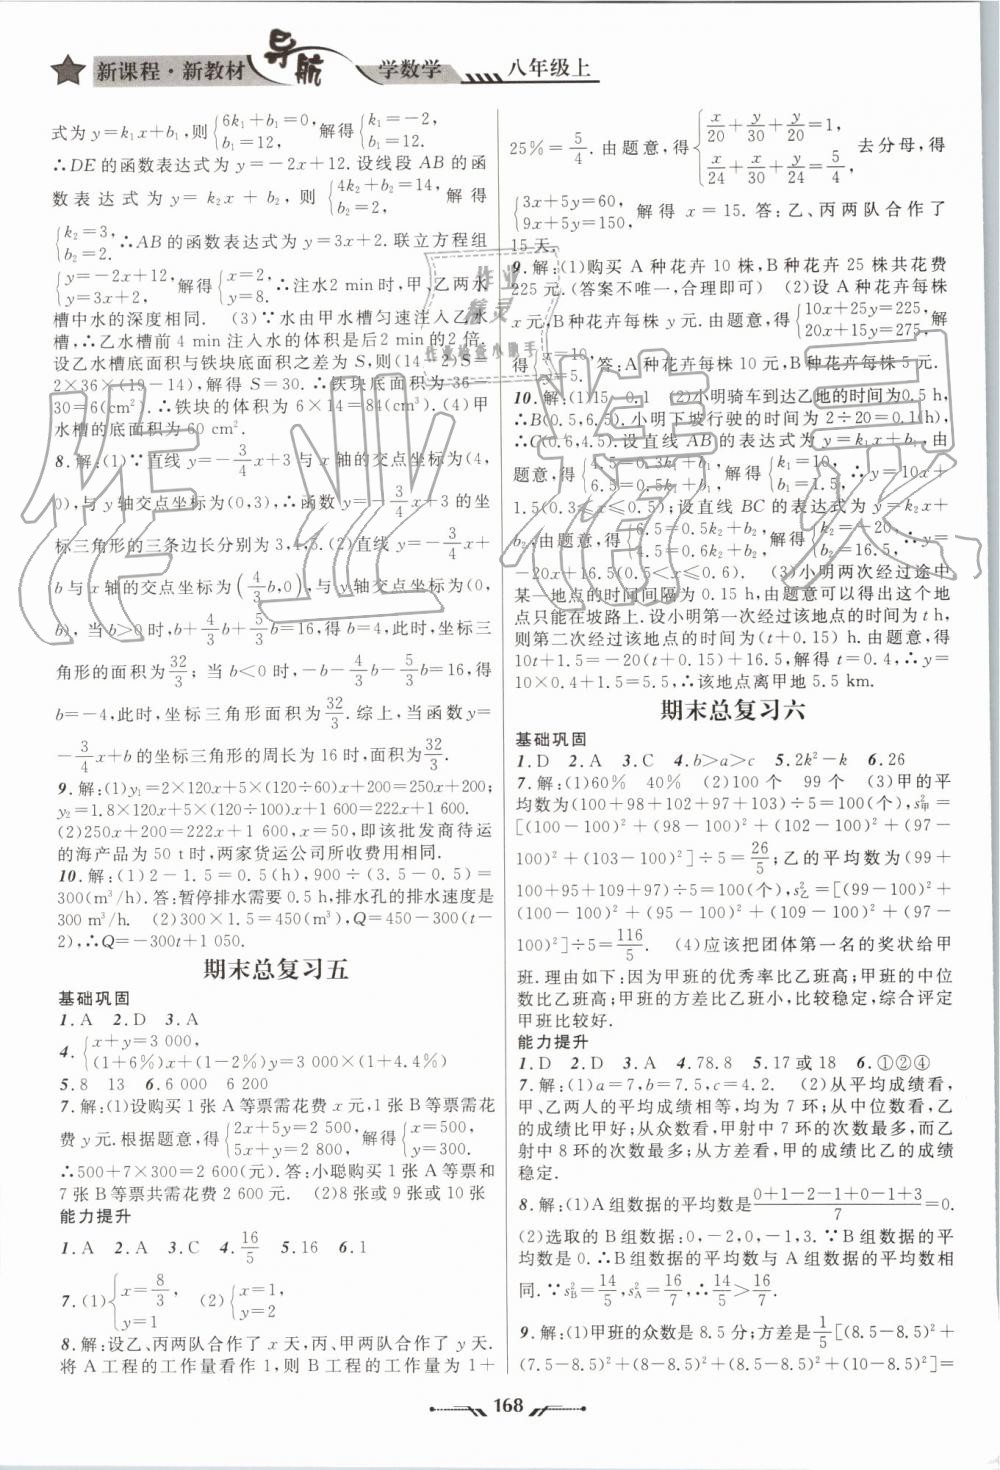 新课程·新教材 导航 学数学 八年级上
式为y=k₁x+b₁,则{6k₁+b₁=0, b₁=12, 解得{k₁=-2, b₁=12.
∴DE的函数表达式为y=-2x+12.设线段AB的函
数表达式为y=k₂x+b₂,则{4k₂+b₂=14, b₂=2, 解得
{k₂=3, b₂=2. ∴AB的函数表达式为y=3x+2.联立方程组
{y=-2x+12, y=3x+2, 解得{x=2, y=8. ∴注水2 min时,甲、乙两水
槽中水的深度相同. (3)∵水由甲水槽匀速注入乙水
槽,∴乙水槽前4 min注入水的体积是后2 min的2倍.
设乙水槽底面积与铁块底面积之差为S,则(14-2)S=
2×36×(19-14),解得S=30.∴铁块底面积为36-
30=6(cm²).∴铁块的体积为6×14=84(cm³).(4)甲
水槽的底面积为60 cm².
8.解:(1)∵直线y=-3/4x+3与x轴的交点坐标为(4,
0),与y轴交点坐标为(0,3),∴函数y=-3/4x+3的坐
标三角形的三条边长分别为3,4,5.(2)直线y=-3/4x+
b与x轴的交点坐标为(4/3b,0),与y轴交点坐标为(0,
b),当b>0时,b+4/3b+5/3b=16,得b=4,此时,坐标三
角形的面积为32/3;当b<0时,-b-4/3b-5/3b=16,得
b=-4,此时,坐标三角形面积为32/3.综上,当函数y=
-3/4x+b的坐标三角形的周长为16时,面积为32/3.
9.解:(1)y₁=2×120x+5×(120÷60)x+200=250x+200;
y₂=1.8×120x+5×(120÷100)x+1 600=222x+1 600.
(2)250x+200=222x+1 600,x=50,即该批发商待运
的海产品为50 t时,两家货运公司所收费用相同.
10.解:(1)2-1.5=0.5(h),900÷(3.5-0.5)=
300(m³/h).答:暂停排水需要0.5 h,排水孔的排水速度是
300 m³/h. (2)300×1.5=450(m³),Q=450-300(t-
2),∴Q=-300t+1 050.
期末总复习五
基础巩固
1.A 2.D 3.A
4.{x+y=3 000, (1+6%)x+(1-2%)y=3 000×(1+4.4%)
5.8 13 6.6 000 6 200
7.解:(1)设购买1张A等票需花费x元,1张B等票需花
费y元.根据题意,得{2x+5y=2 500, 5x+4y=2 900, 解得{x=500, y=300.
∴500+7×300=2 600(元).答:小聪购买1张A等票和
7张B等票共需花费2 600元. (2)8张或9张或10张
能力提升
1.A 2.A 3.C 4.16/5 5.16 6.1
7.(1){x=8/3, y=1 (2){x=1, y=2
8.解:设乙、丙两队合作了x天,丙、甲两队合作了y天.
将A工程的工作量看作1,则B工程的工作量为1+
25%=5/4.由题意,得{x/20+y/30+y/20=1, x/24+x/30+y/24=5/4, 去分母,得
{3x+5y=60, 9x+5y=150, 解得x=15.答:乙、丙两队合作了
15天.
9.解:(1)购买A种花卉10株,B种花卉25株共花费
225元.(答案不唯一,合理即可) (2)设A种花卉每株
x元,B种花卉每株y元.由题意,得{10x+25y=225, 20x+15y=275, 解
得{x=10, y=5. 答:A种花卉每株10元,B种花卉每株5元.
10.解:(1)15 0.1 (2)小明骑车到达乙地的时间为0.5 h,
∴B(0.5,6.5).小明下坡行驶的时间为2÷20=0.1(h),
∴C(0.6,4.5).设直线AB的表达式为y=k₁x+b₁,由
题意,得{4.5=0.3k₁+b₁, 6.5=0.5k₁+b₁, 解得{k₁=10, b₁=1.5, ∴y=10x+
1.5(0.3≤x≤0.5);设直线BC的表达式为y=k₂x+
b₂,由题意,得{6.5=0.5k₂+b₂, 4.5=0.6k₂+b₂, 解得{k₂=-20, b₂=16.5, ∴y=
-20x+16.5(0.5<x≤0.6). (3)小明两次经过途中
某一地点的时间间隔为0.15 h,由题意可以得出这个地
点只能在坡路上.设小明第一次经过该地点的时间为t h,
则第二次经过该地点的时间为(t+0.15) h.由题意,得
10t+1.5=-20(t+0.15)+16.5,解得t=0.4,∴y=
10×0.4+1.5=5.5,∴该地点离甲地5.5 km.
期末总复习六
基础巩固
1.D 2.A 3.C 4.b>a>c 5.2k²-k 6.26
7.解:(1)60% 40% (2)100个 99个 (3)甲的平
均数为(100+98+102+97+103)÷5=100(个),s²甲=
[(100-100)²+(98-100)²+(102-100)²+(97-
100)²+(103-100)²]÷5=26/5;乙的平均数为(99+
100+95+109+97)÷5=100(个),s²乙=[(99-100)²+
(100-100)²+(95-100)²+(109-100)²+(97-
100)²]÷5=116/5. (4)应该把团体第一名的奖状给甲
班.理由如下:因为甲班的优秀率比乙班高;甲班的中位
数比乙班高;甲班的方差比乙班小,比较稳定,综合评定
甲班比较好.
能力提升
1.D 2.D 3.A 4.78.8 5.17或18 6.①②④
7.解:(1)a=7,b=7.5,c=4.2. (2)从平均成绩看,
甲、乙两人的平均成绩相等,均为7环;从中位数看,乙
的成绩比甲好;从众数看,甲射中7环的次数最多,而乙
射中8环的次数最多;从方差看,甲的成绩比乙的成绩
稳定.
8.解:(1)A组数据的平均数是0+1-2-1+0-1+3/7=0.
(2)选取的B组数据:0,-2,0,-1,3.∵B组数据的平
均数是0.∴B组数据的平均数与A组数据的平均数相
同.∵s²B=14/5,s²A=16/7,∴14/5>16/7.
9.解:(1)甲班的众数是8.5分;方差是1/5[(8.5-8.5)²+
(7.5-8.5)²+(8-8.5)²+(8.5-8.5)²+(10-8.5)²]=
168
作业精灵
作业检查小助手
作业精灵